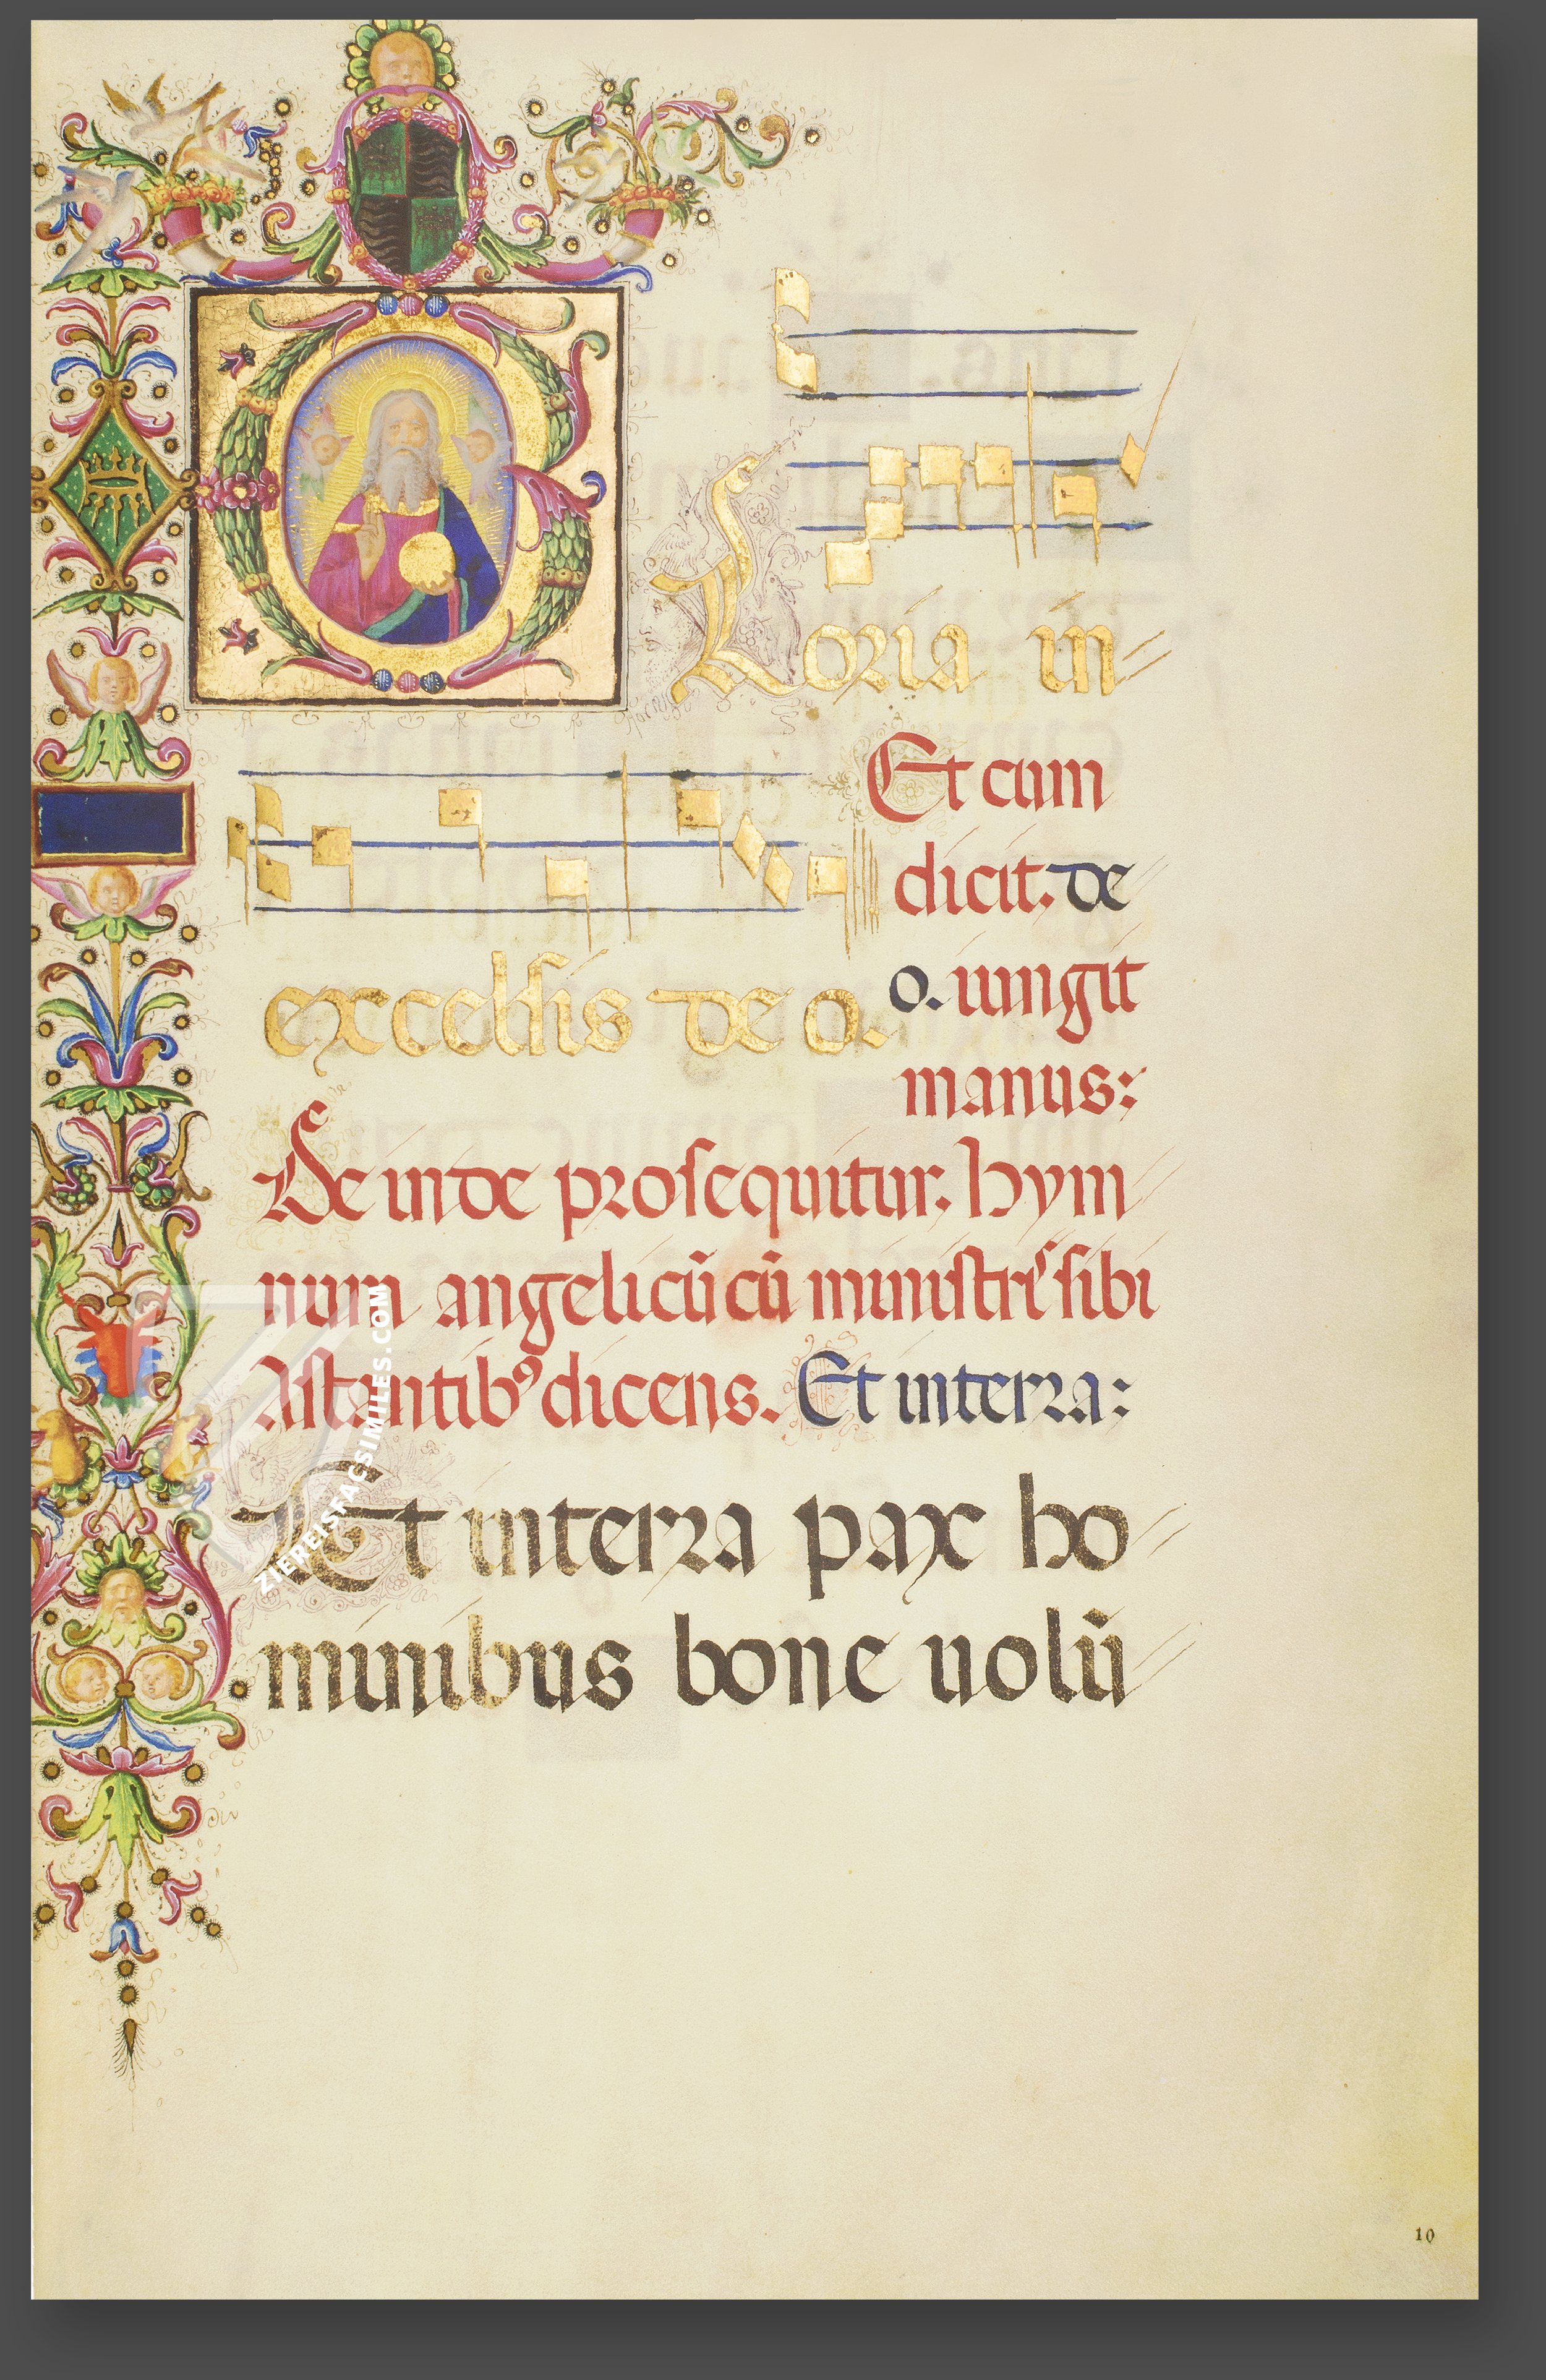 GLoria in
Et cum
dicit. de
o. iungit
manus:
excelſis de o.
De inde proſequitur. hym
num angelicū cū ſibi
Aſtantibꝰ dicens. Et interra:
Et interra pax ho
minibus bone uolū
10
ZIEREISFACSIMILES.COM